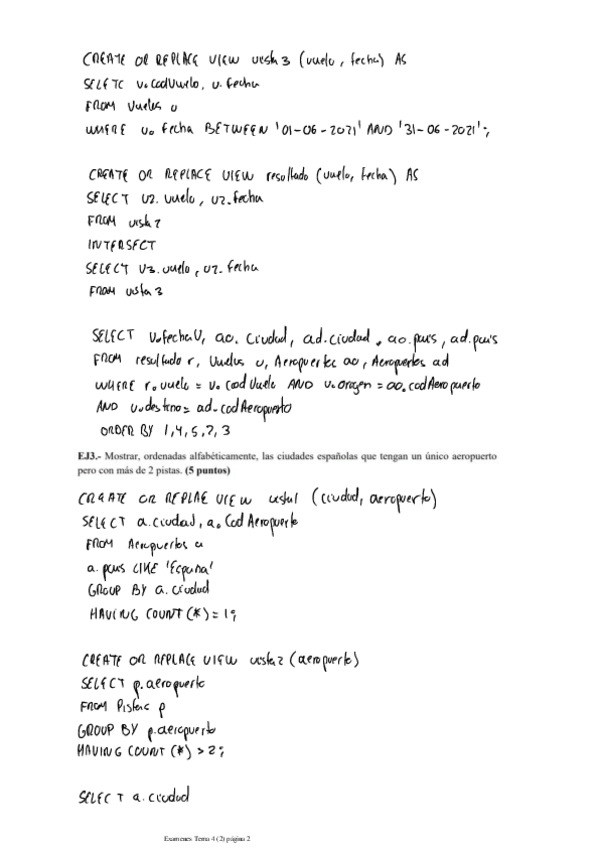 CREATE OR REPLACE VIEW vista3 (vuelo, fecha) AS
SELETC v.CodVuelo, v.fecha
FROM Vuelos v
WHERE v.fecha BETWEEN '01-06-2021' AND '31-06-2021';
CREATE OR REPLACE VIEW resultado (vuelo, fecha) AS
SELECT v2.vuelo, v2.fecha
FROM vista2
INTERSECT
SELECT v3.vuelo, v2.fecha
FROM vista3
SELECT v.fechaV, ao.ciudad, ad.ciudad, ao.pais, ad.pais
FROM resultado r, Vuelos v, Aeropuertos ao, Aeropuertos ad
WHERE r.vuelo = v.codVuelo AND v.origen = ao.codAeropuerto
AND v.destino = ad.codAeropuerto
ORDER BY 1,4,5,2,3
EJ3.- Mostrar, ordenadas alfabéticamente, las ciudades españolas que tengan un único aeropuerto
pero con más de 2 pistas. (5 puntos)
CREATE OR REPLAE VIEW vista1 (ciudad, aeropuerto)
SELECT a.ciudad, a.CodAeropuerto
FROM Aeropuertos a
a.pais LIKE 'España'
GROUP BY a.ciudad
HAVING COUNT(*)=1;
CREATE OR REPLACE VIEW vista2 (aeropuerto)
SELECT p.aeropuerto
FROM Pistas p
GROUP BY p.aeropuerto
HAVING COUNT(*) >2;
SELECT a.ciudad
Examenes Tema 4 (2) página 2